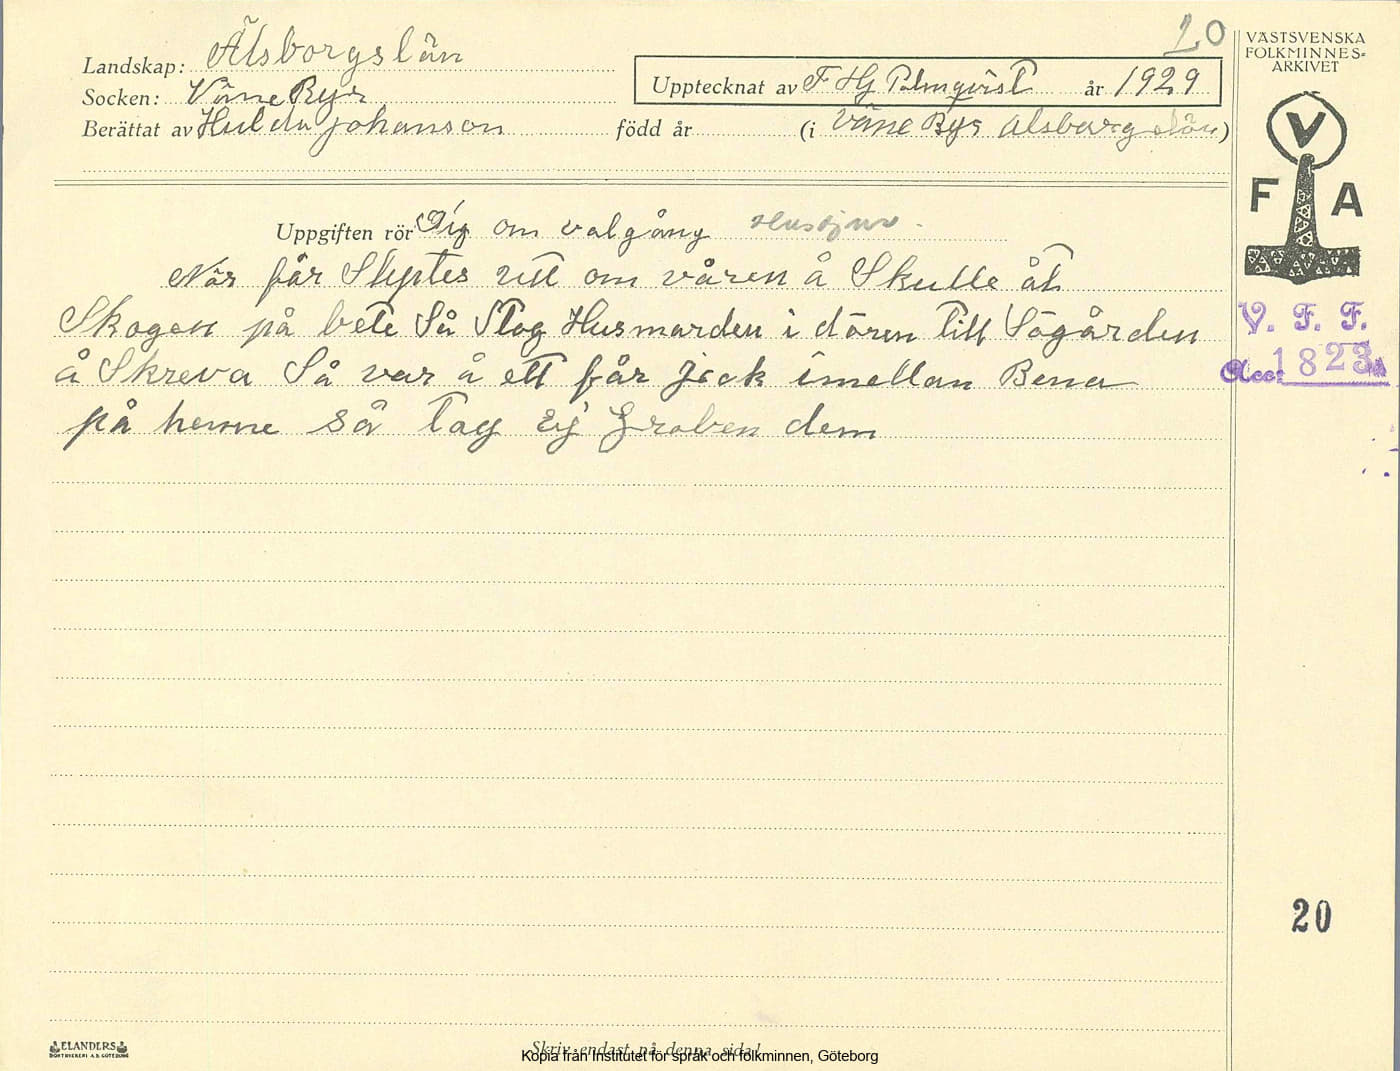 20
Landskap: Älsborgslän
Socken: Väne Ryr
Berättat av Hulda johanson
Upptecknat av F Hj Palmqvist år 1929
född år (i Väne Ryr Alsborgslän)
VÄSTSVENSKA
FOLKMINNES-
ARKIVET
V
F A
V. F. F.
Acc: 1823
Uppgiften rör Sig om valgång Husdjur.
När får Slyptes utt om våren å Skulle åt
Skogen på bete Så Stog Husmorden i dören till Fögården
å Skreva Så var å ett får jick imellan Bena
på henne så tog ej Graben dem
20
ELANDERS
BOKTRYCKERI A.B. GÖTEBORG
Skriv endast på denna sida!
Kopia från Institutet för språk och folkminnen, Göteborg